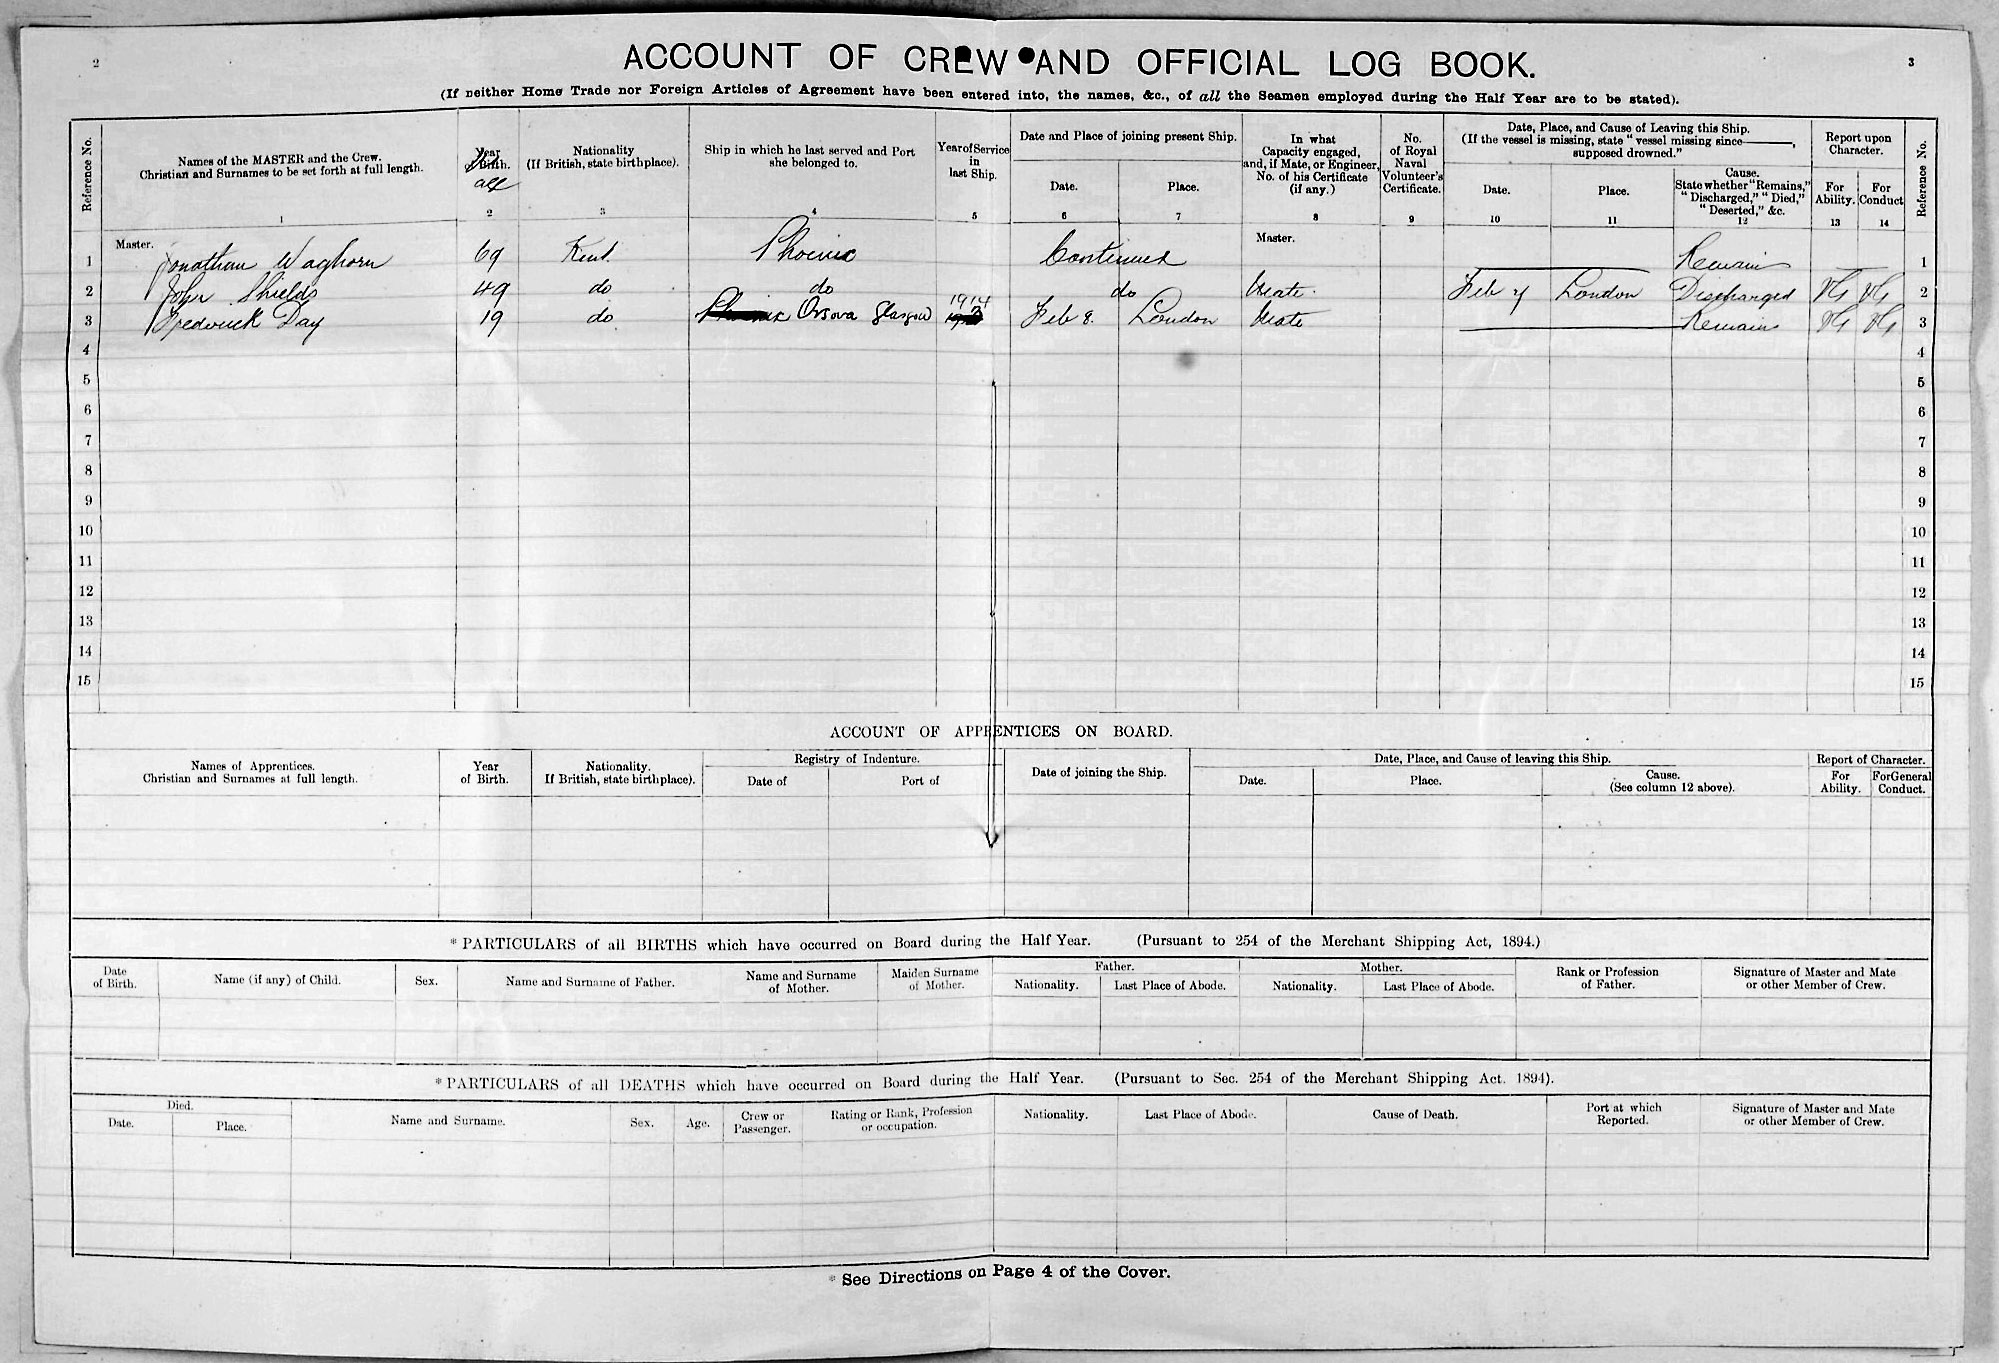 2
3
ACCOUNT OF CREW AND OFFICIAL LOG BOOK.
(If neither Home Trade nor Foreign Articles of Agreement have been entered into, the names, &c., of all the Seamen employed during the Half Year are to be stated).
Reference No.
Names of the MASTER and the Crew.
Christian and Surnames to be set forth at full length.
1
Year
Birth.
2
Nationality
(If British, state birthplace).
3
Ship in which he last served and Port
she belonged to.
4
Year of Service
in
last Ship.
5
Date and Place of joining present Ship.
Date.
6
Place.
7
In what
Capacity engaged,
and, if Mate, or Engineer,
No. of his Certificate
(if any.)
8
No.
of Royal
Naval
Volunteer's
Certificate.
9
Date, Place, and Cause of Leaving this Ship.
(If the vessel is missing, state "vessel missing since———,
supposed drowned."
Date.
10
Place.
11
Cause.
State whether "Remains,"
"Discharged," "Died,"
"Deserted," &c.
12
Report upon
Character.
For
Ability.
13
For
Conduct
14
Reference No.
1 Master. Jonathan Waghorn 69 Kent Phoenix Continued Master. Remains 1
2 John Shields 49 do do do Mate. Feb 7 London Discharged VG VG 2
3 Frederick Day 19 do Phoenix Orsova Glasgow 1914 Feb 8. London Mate Remains VG VG 3
4 4
5 5
6 6
7 7
8 8
9 9
10 10
11 11
12 12
13 13
14 14
15 15
ACCOUNT OF APPRENTICES ON BOARD.
Names of Apprentices.
Christian and Surnames at full length.
Year
of Birth.
Nationality.
If British, state birthplace).
Registry of Indenture.
Date of
Port of
Date of joining the Ship.
Date, Place, and Cause of leaving this Ship.
Date.
Place.
Cause.
(See column 12 above).
Report of Character.
For
Ability.
For General
Conduct.
* PARTICULARS of all BIRTHS which have occurred on Board during the Half Year. (Pursuant to 254 of the Merchant Shipping Act, 1894.)
Date
of Birth.
Name (if any) of Child.
Sex.
Name and Surname of Father.
Name and Surname
of Mother.
Maiden Surname
of Mother.
Father.
Nationality.
Last Place of Abode.
Mother.
Nationality.
Last Place of Abode.
Rank or Profession
of Father.
Signature of Master and Mate
or other Member of Crew.
* PARTICULARS of all DEATHS which have occurred on Board during the Half Year. (Pursuant to Sec. 254 of the Merchant Shipping Act. 1894).
Died.
Date.
Place.
Name and Surname.
Sex.
Age.
Crew or
Passenger.
Rating or Rank, Profession
or occupation.
Nationality.
Last Place of Abode.
Cause of Death.
Port at which
Reported.
Signature of Master and Mate
or other Member of Crew.
* See Directions on Page 4 of the Cover.